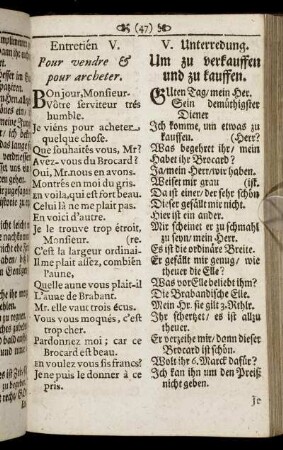 (47)
Entretién V.
Pour vendre &
pour archeter.
BOn jour, Monsieur-
Vôtre serviteur trés
humble.
Je viéns pour acheter
quelque chose.
Que souhaités vous, Mr?
Avez-vous du Brocard?
Oui, Mr. nous en avons.
Montrés en moi du gris.
En voila, qui est fort beau.
Celui là ne me plait pas.
En voici d'autre.
Je le trouve trop étroit,
Monsieur. (re.
C'est la largeur ordinai-
Il me plait assez, combién
l'aune,
Quelle aune vous plait-il
L'aune de Brabant.
Mr. elle vaut trois écus.
Vous vous moqués, c'est
trop cher.
Pardonnez moi; car ce
Brocard est beau.
En voulez vous six francs?
Je ne puis le donner à ce
pris.
V. Unterredung.
Um zu verkauffen
und zu kauffen.
GUten Tag/ mein Her.
Sein demüthigster
Diener
Ich komme, um etwas zu
kauffen. (Herr?
Was begehrt ihr/ mein
Habet ihr Brocard?
Ja/ mein Herr/ wir haben.
Weiset mir grau (ist.
Da ist einer/ der sehr schön
Dieser gefällt mir nicht.
Hier ist ein ander.
Mir scheinet er zu schmahl
zu seyn/ mein Herr.
Es ist die ordinäre Breite.
Er gefällt mir genug/ wie
theuer die Elle?
Was vor Elle beliebt ihm?
Die Brabandische Elle.
Mein Hr. sie gilt 3. Rthlr.
Ihr schertzet/ es ist allzu
theuer.
Er verzeihe mir/ denn dieser
Brocard ist schön.
Wolt ihr 6. Marck dafür?
Ich kan ihn um den Preiß
nicht geben.
Je